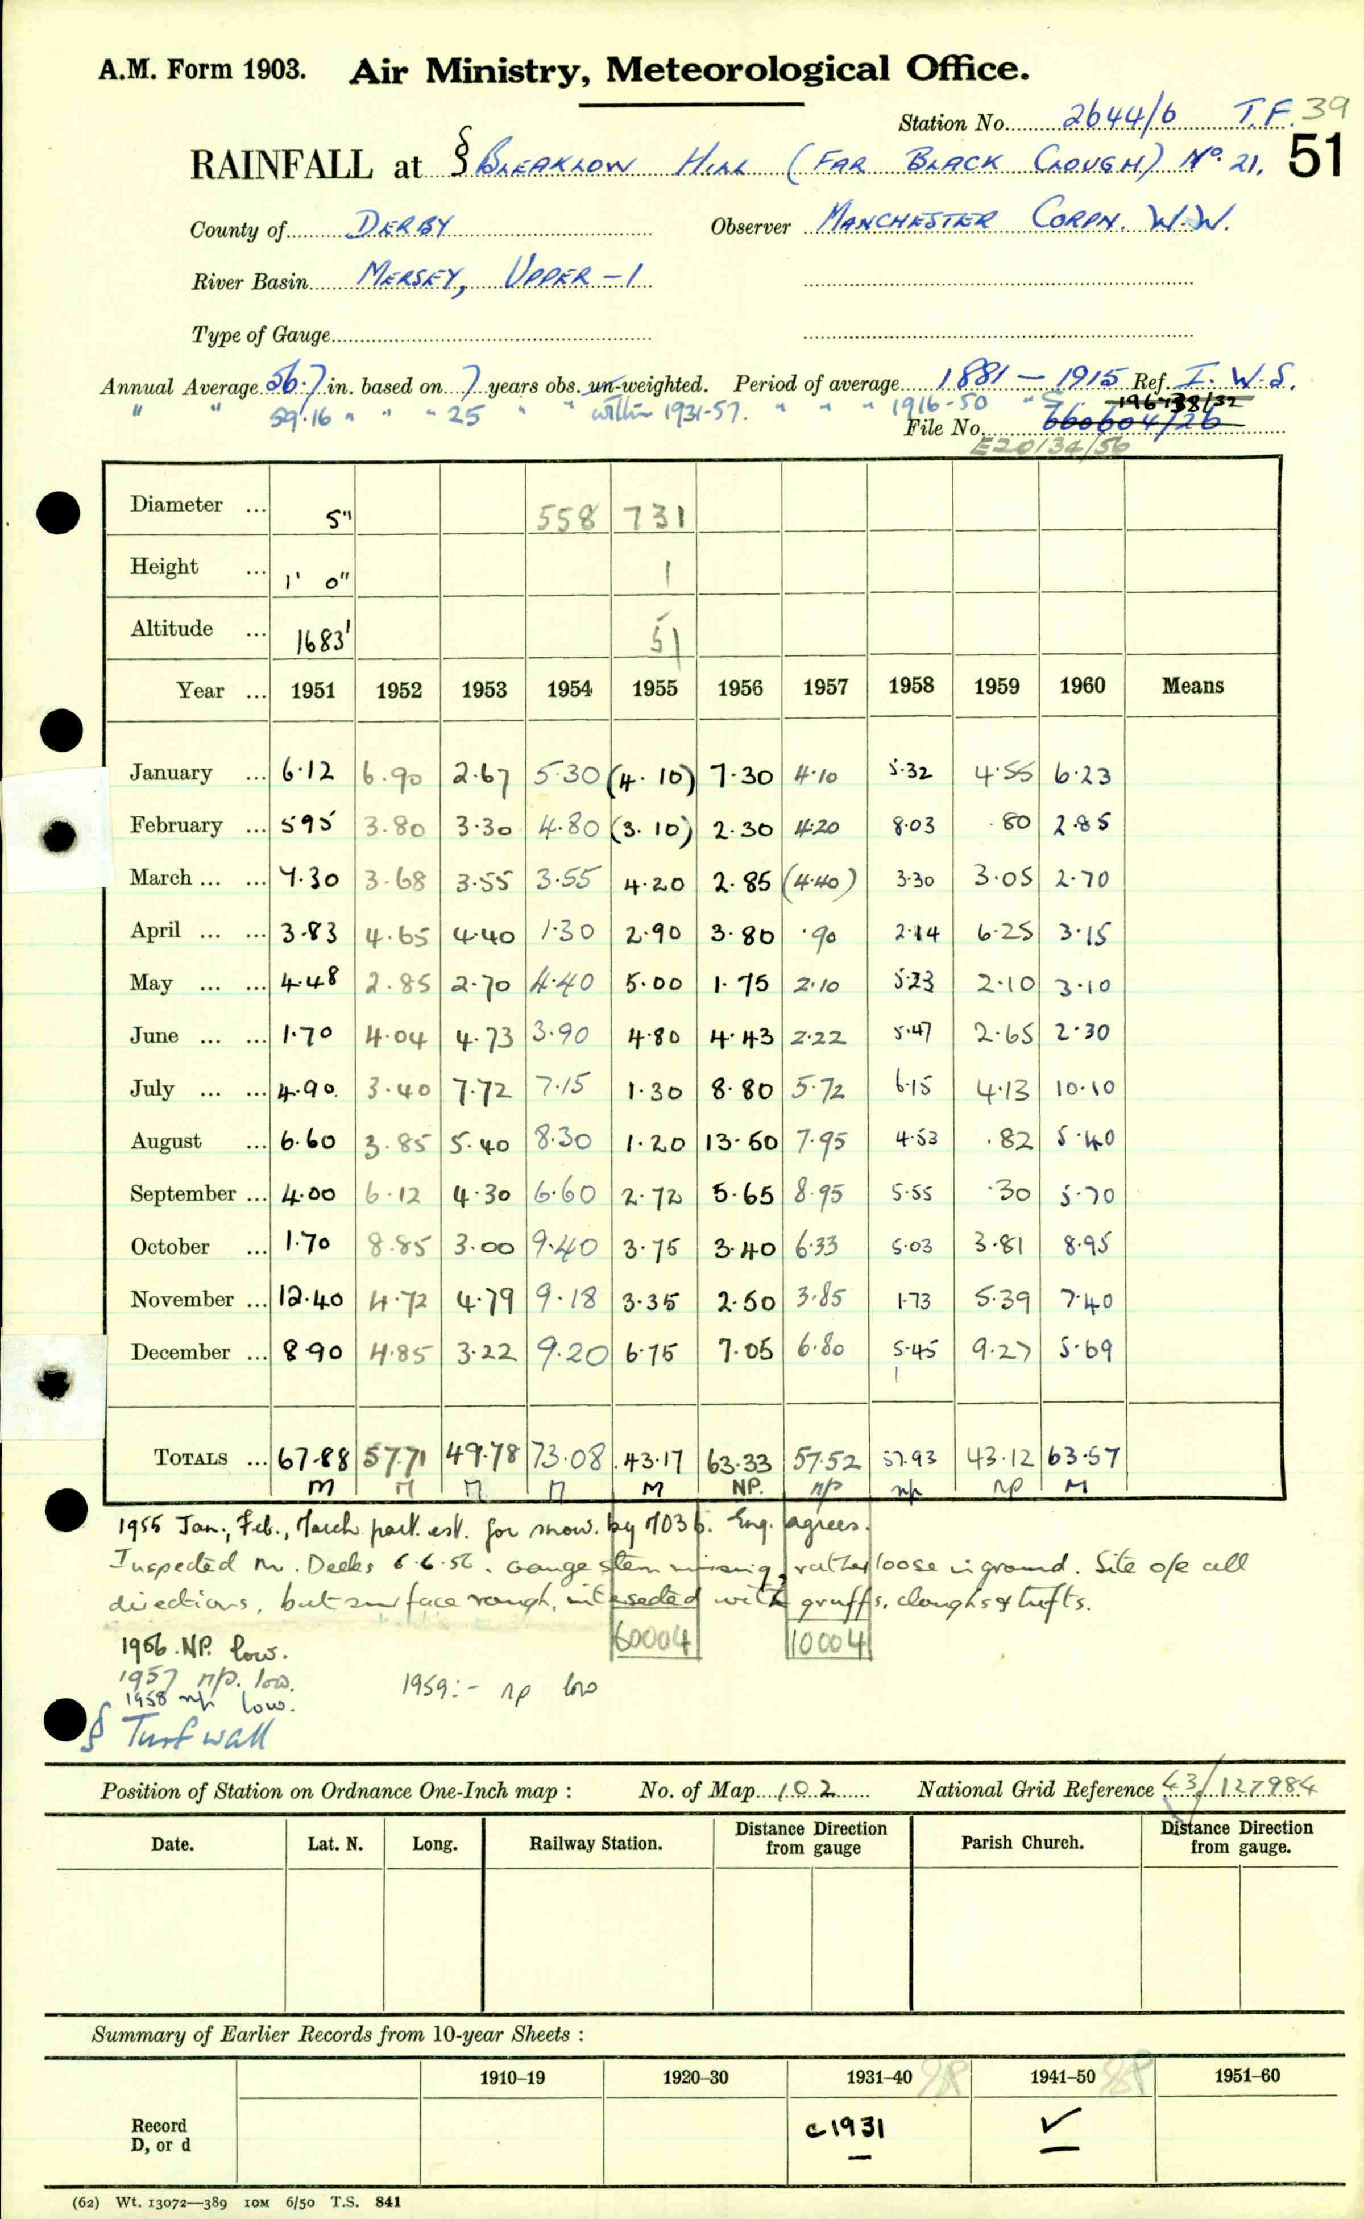 A.M. Form 1903. Air Ministry, Meteorological Office.
Station No. 2644/6 T.F. 39
RAINFALL at § BLEAKLOW HILL (FAR BLACK CLOUGH) No. 21. 51
County of DERBY Observer MANCHESTER CORPN. W.W.
River Basin MERSEY, UPPER - 1
Type of Gauge
Annual Average 56.7 in. based on 7 years obs. un-weighted. Period of average 1881 - 1915 Ref. I. W.S.
" " 59.16 " " " 25 " " within 1931-57. " " " 1916-50 "
File No. 660604/26
E20134/56
Diameter ... 5" 558 731
Height ... 1' 0" 1
Altitude ... 1683' 51
Year ... 1951 1952 1953 1954 1955 1956 1957 1958 1959 1960 Means
January ... 6.12 6.90 2.67 5.30 (4.10) 7.30 4.10 5.32 4.55 6.23
February ... 595 3.80 3.30 4.80 (3.10) 2.30 4.20 8.03 .80 2.85
March ... ... 7.30 3.68 3.55 3.55 4.20 2.85 (4.40) 3.30 3.05 2.70
April ... ... 3.83 4.65 4.40 1.30 2.90 3.80 .90 2.14 6.25 3.15
May ... ... 4.48 2.85 2.70 4.40 5.00 1.75 2.10 5.23 2.10 3.10
June ... ... 1.70 4.04 4.73 3.90 4.80 4.43 2.22 5.47 2.65 2.30
July ... ... 4.90 3.40 7.72 7.15 1.30 8.80 5.72 6.15 4.13 10.10
August ... 6.60 3.85 5.40 8.30 1.20 13.50 7.95 4.53 .82 5.40
September ... 4.00 6.12 4.30 6.60 2.72 5.65 8.95 5.55 .30 5.70
October ... 1.70 8.85 3.00 9.40 3.75 3.40 6.33 5.03 3.81 8.95
November ... 12.40 4.72 4.79 9.18 3.35 2.50 3.85 1.73 5.39 7.40
December ... 8.90 4.85 3.22 9.20 6.75 7.05 6.80 5.45 9.27 5.69
TOTALS ... 67.88 57.71 49.78 73.08 43.17 63.33 57.52 57.93 43.12 63.57
M M M M M NP. np np np M
1955 Jan., Feb., March part. est. for snow. by M03b. Eng. agrees.
Inspected Mr. Deeks 6.6.56. Gauge stem missing, rather loose in ground. Site o/e all
directions, but surface rough, intersected with gruffs, cloughs & tufts.
60004 10004
1956 NP. low.
1957 np. low.
1958 np low. 1959:- np low
§ Turf wall
Position of Station on Ordnance One-Inch map : No. of Map 102 National Grid Reference 43/127984
Date. Lat. N. Long. Railway Station. Distance Direction from gauge Parish Church. Distance Direction from gauge.
Summary of Earlier Records from 10-year Sheets :
1910–19 1920–30 1931–40 1941–50 1951–60
Record D, or d c1931 ✓
(62) Wt. 13072—389 10M 6/50 T.S. 841